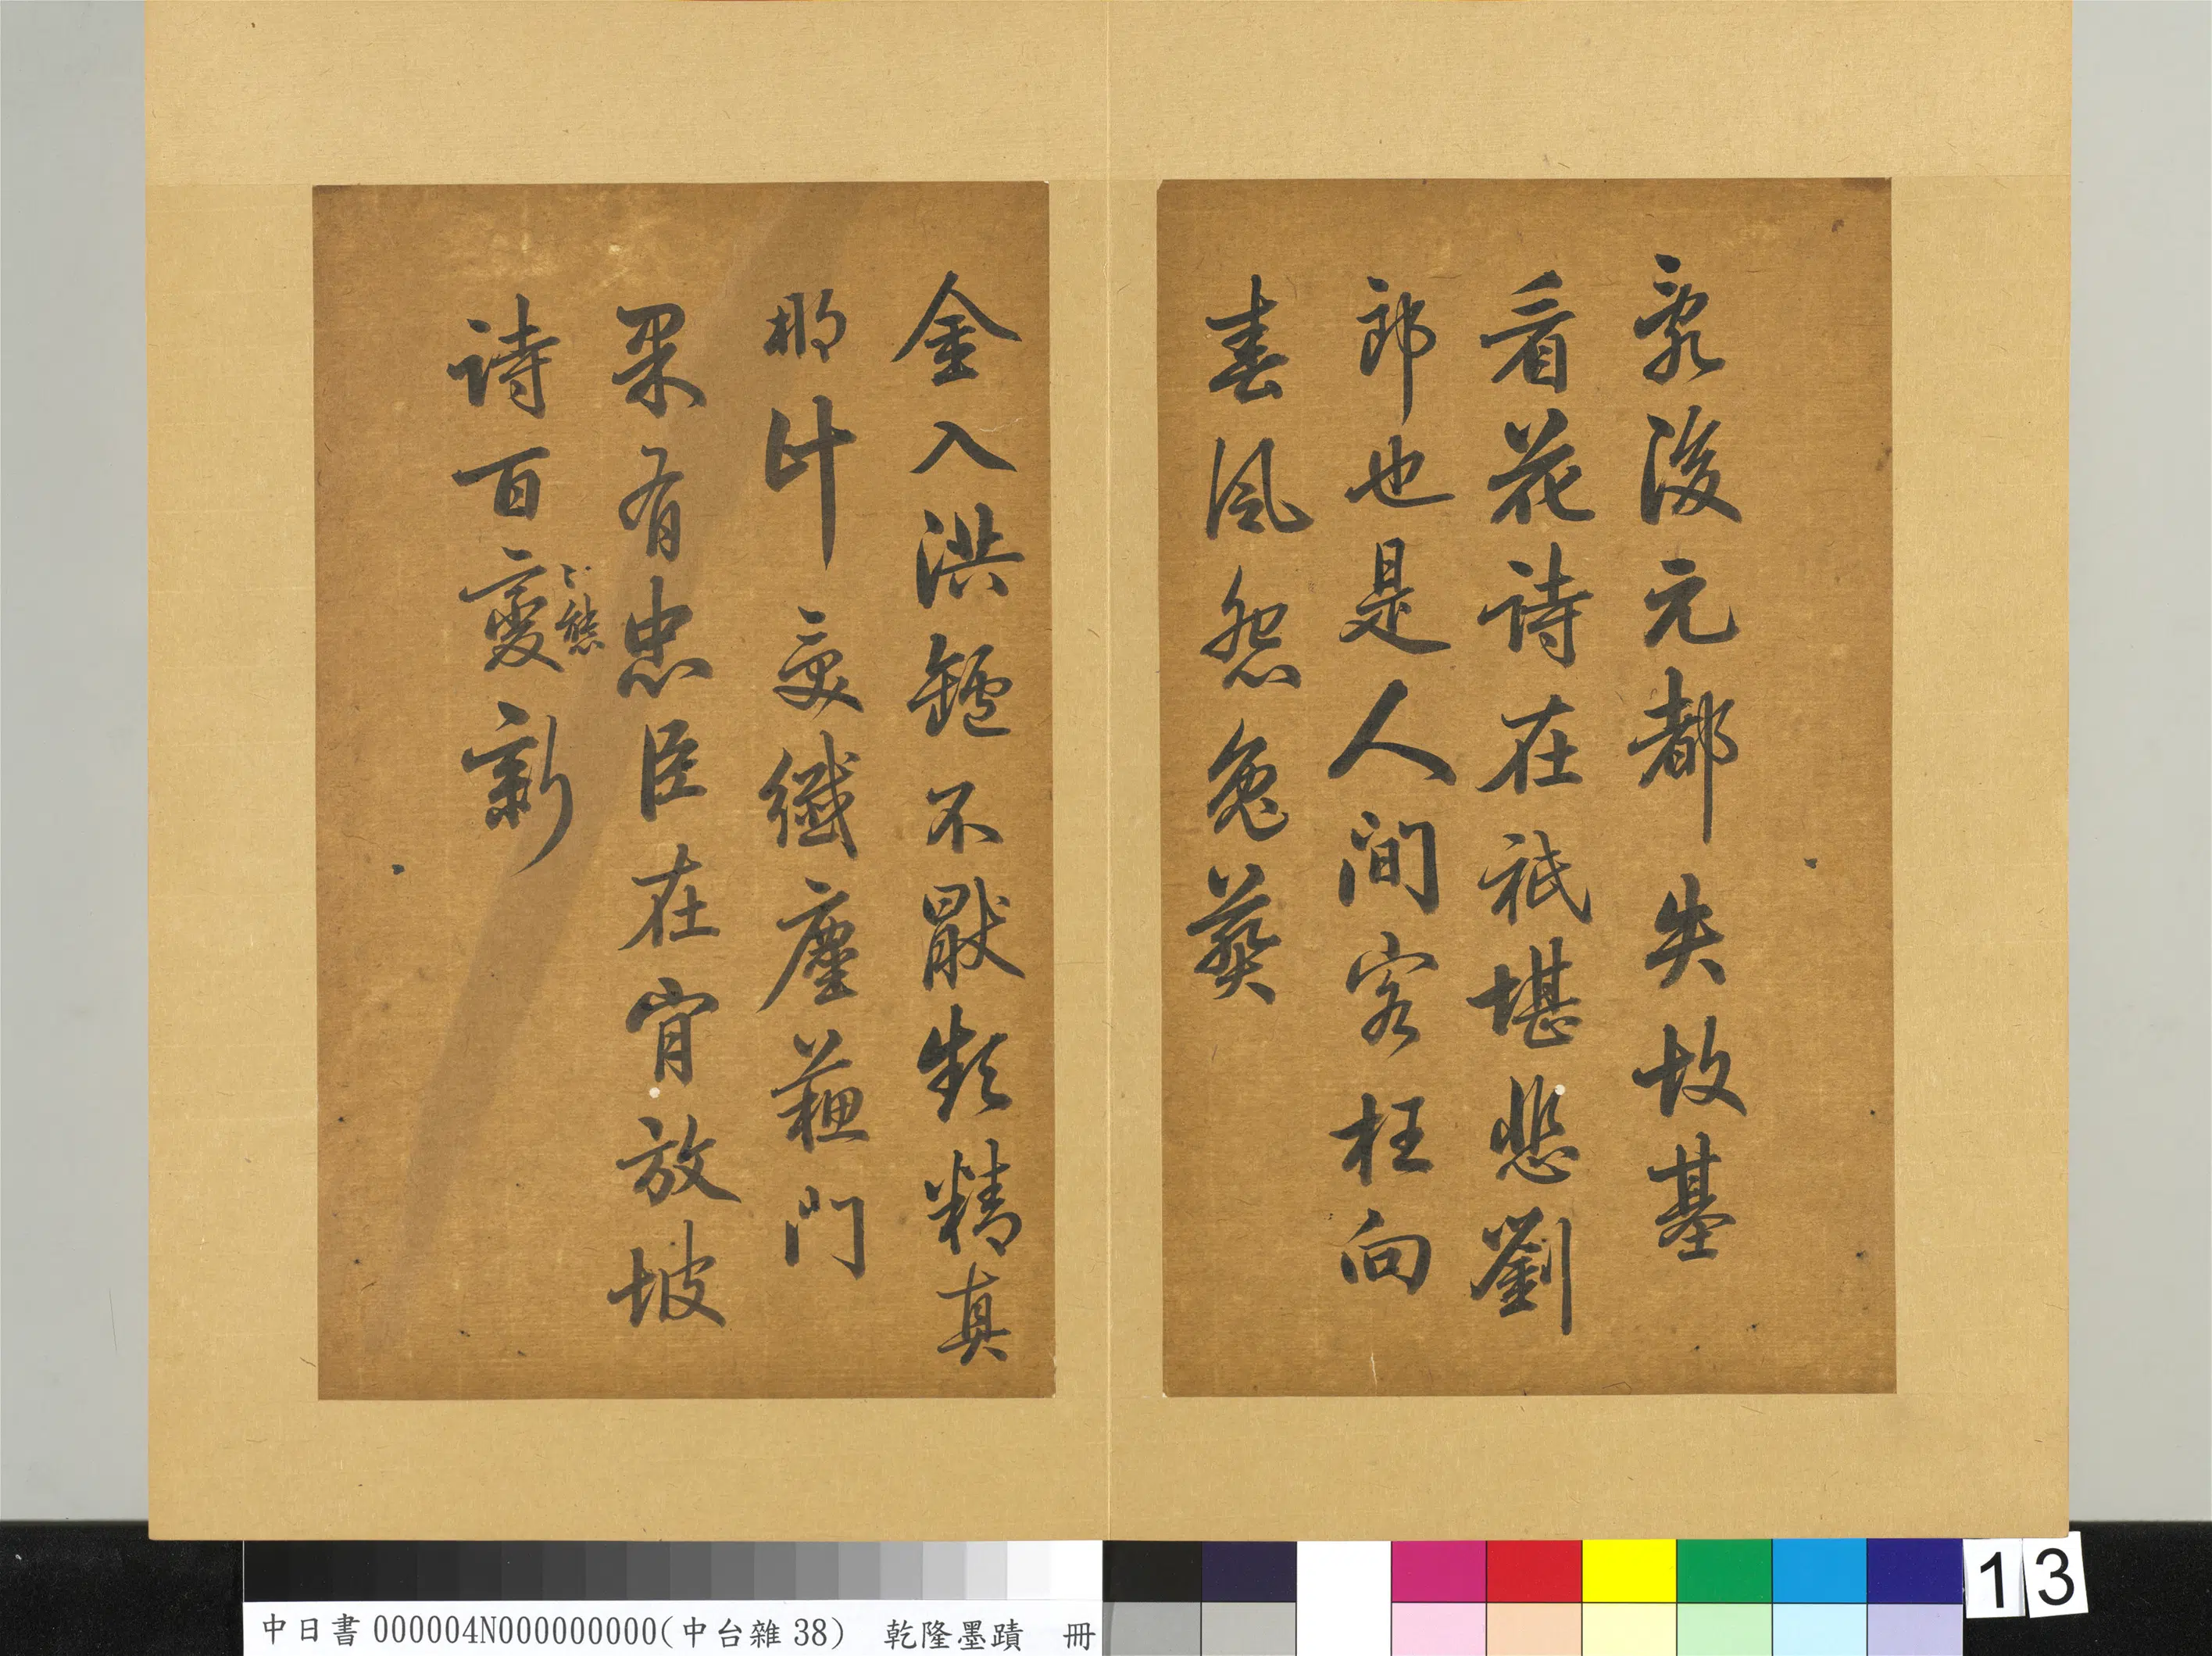 亂後元都失故基
看花詩在祇堪悲劉
郎也是人間客枉向
春風怨兔葵
金入洪鑪不猒頻精真
那計受纖塵蘇門
果有忠臣在肯放坡
詩百變新
態
中日書000004N000000000(中台雜38) 乾隆墨蹟 冊
13